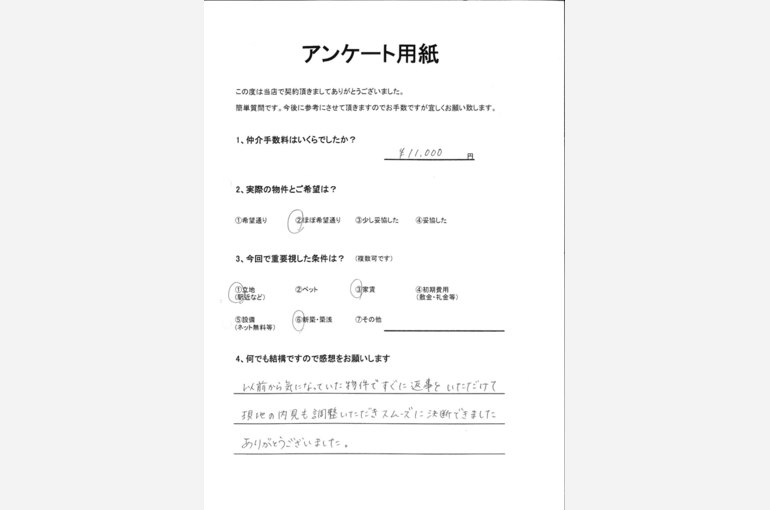 アンケート用紙
この度は当店で契約頂きましてありがとうございました。
簡単質問です。今後に参考にさせて頂きますのでお手数ですが宜しくお願い致します。
1、仲介手数料はいくらでしたか？
¥11,000 円
2、実際の物件とご希望は？
①希望通り ②ほぼ希望通り ③少し妥協した ④妥協した
3、今回で重要視した条件は？ （複数可です）
①立地 ②ペット ③家賃 ④初期費用
（駅近など） （敷金・礼金等）
⑤設備 ⑥新築・築浅 ⑦その他
（ネット無料等）
4、何でも結構ですので感想をお願いします
以前から気になっていた物件ですぐに返事をいただけて
現地の内見も調整いただきスムーズに決断できました
ありがとうございました。